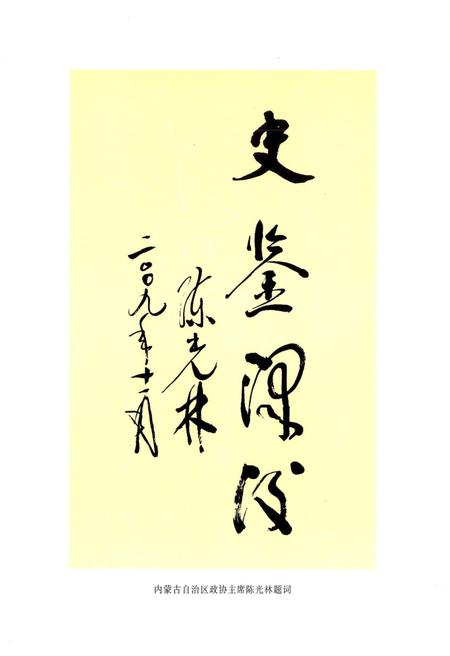 史鉴
陈光林
二〇〇九年十一月
内蒙古自治区政协主席陈光林题词